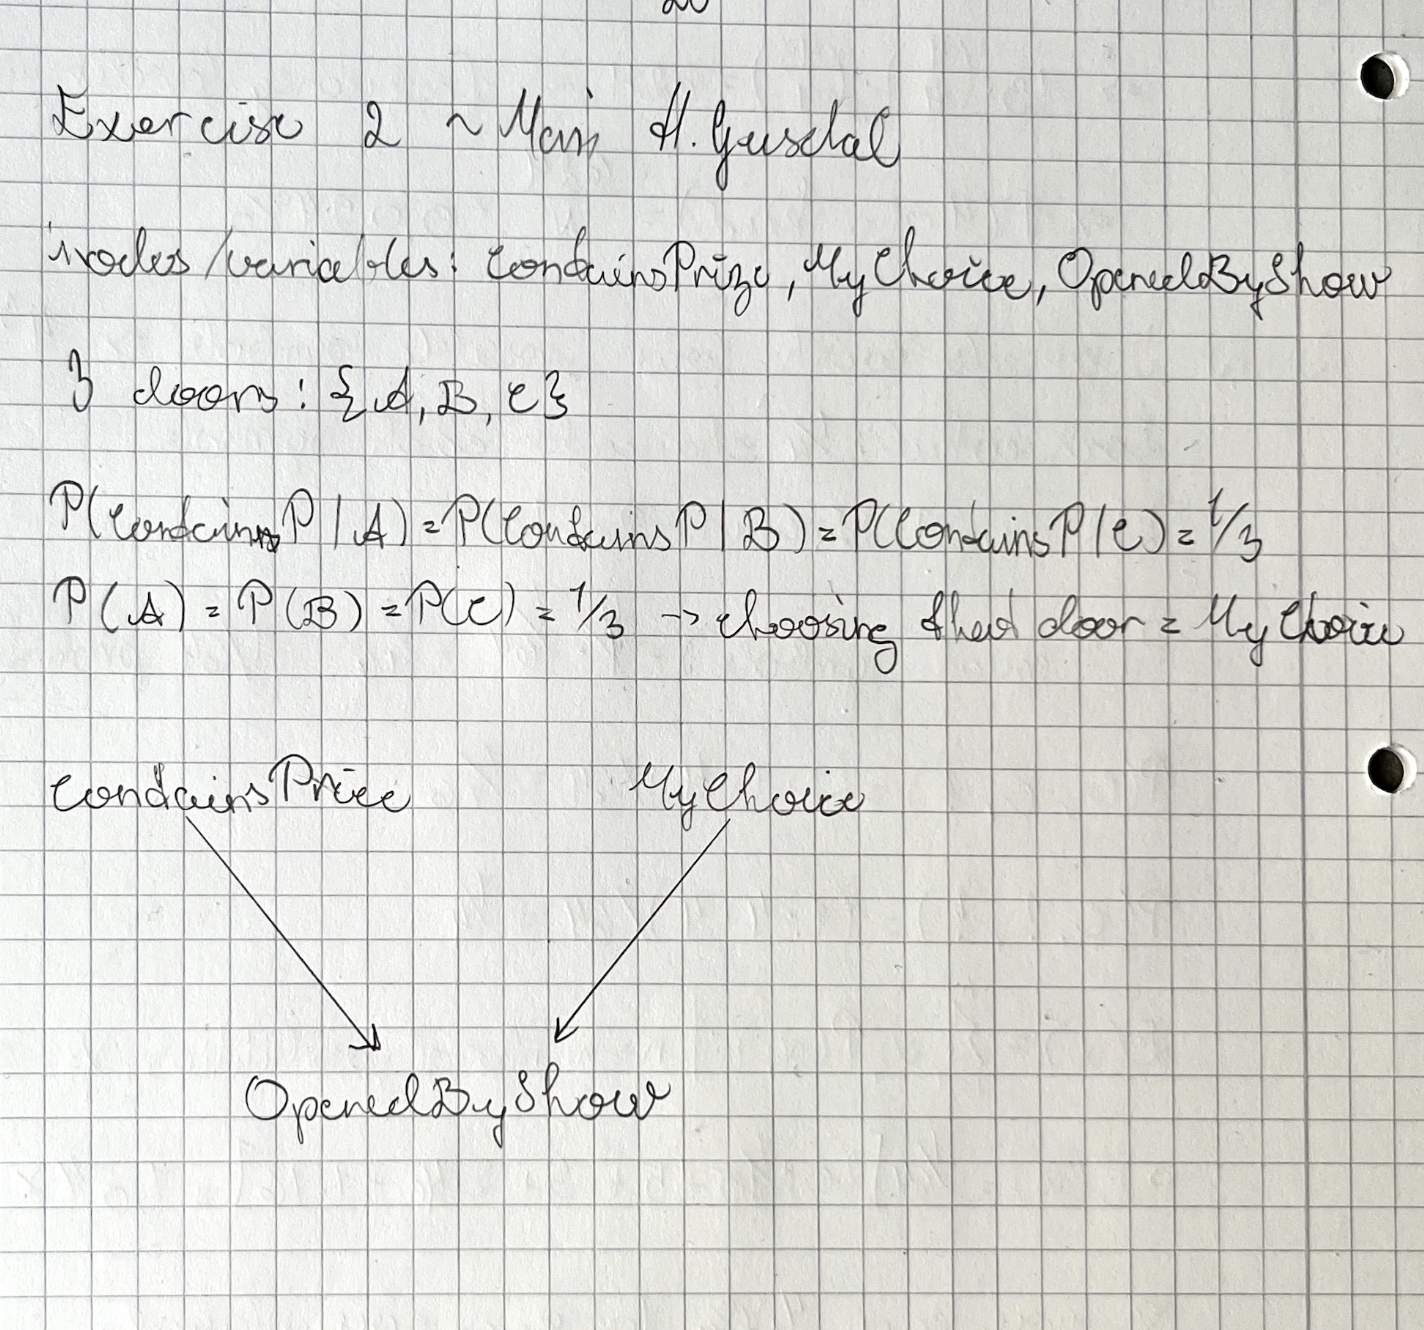 Exercise 2 ~ H. Gusdal
nodes/variables: ContainsPrize, MyChoice, OpenedByShow
3 doors: {A, B, C}
P(ContainsP|A) = P(ContainsP|B) = P(ContainsP|C) = 1/3
P(A) = P(B) = P(C) = 1/3 → choosing that door = MyChoice
ContainsPrize MyChoice
OpenedByShow